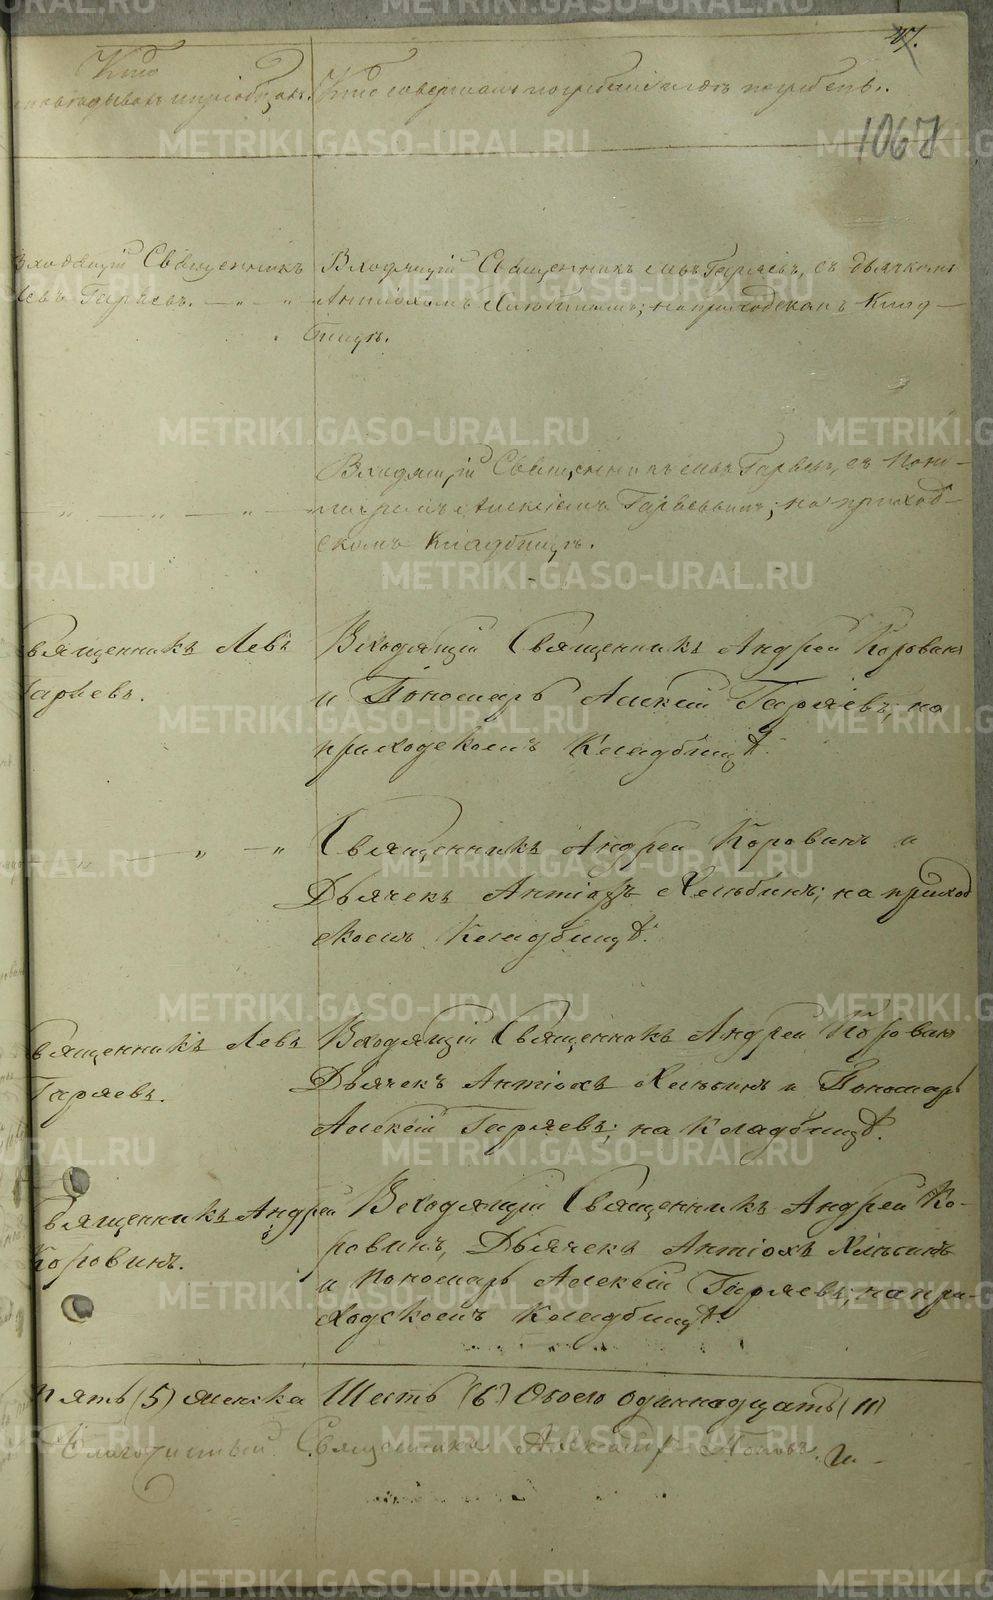 47.
1067
Кто
исповѣдывалъ и пріобщалъ.
Кто совершалъ погребеніе и гдѣ погребены.
Входящій Священникъ
Левъ Гаряевъ. — „ — „
Входящій Священникъ Левъ Гаряевъ, съ Дьячкомъ
Антіохомъ Хлѣбинымъ; на приходскомъ Клад-
бищѣ.
— „ — „ — „ —
Входящій Священникъ Левъ Гаряевъ, съ Поно-
маремъ Алексіемъ Гаряевымъ; на приход-
скомъ Кладбищѣ.
Священникъ Левъ
Гаряевъ.
Входящій Священникъ Андрей Коровинъ
и Пономарь Алексій Гаряевъ; на
приходскомъ Кладбищѣ.
„ — „ — „
Священникъ Андрей Коровинъ и
Дьячекъ Антіохъ Хлѣбинъ; на приход
скомъ Кладбищѣ.
Священникъ Левъ
Гаряевъ.
Входящій Священникъ Андрей Коровинъ
Дьячекъ Антіохъ Хлѣбинъ и Пономарь
Алексій Гаряевъ; на Кладбищѣ.
Священникъ Андрей
Коровинъ.
Входящій Священникъ Андрей Ко-
ровинъ, Дьячекъ Антіохъ Хлѣбинъ
и Пономарь Алексій Гаряевъ; на при-
ходскомъ Кладбищѣ.
Пять (5) женска Шесть (6) Обоего одиннадцать (11)
Благочинный Священникъ Александръ Поповъ.
METRIKI.GASO-URAL.RU